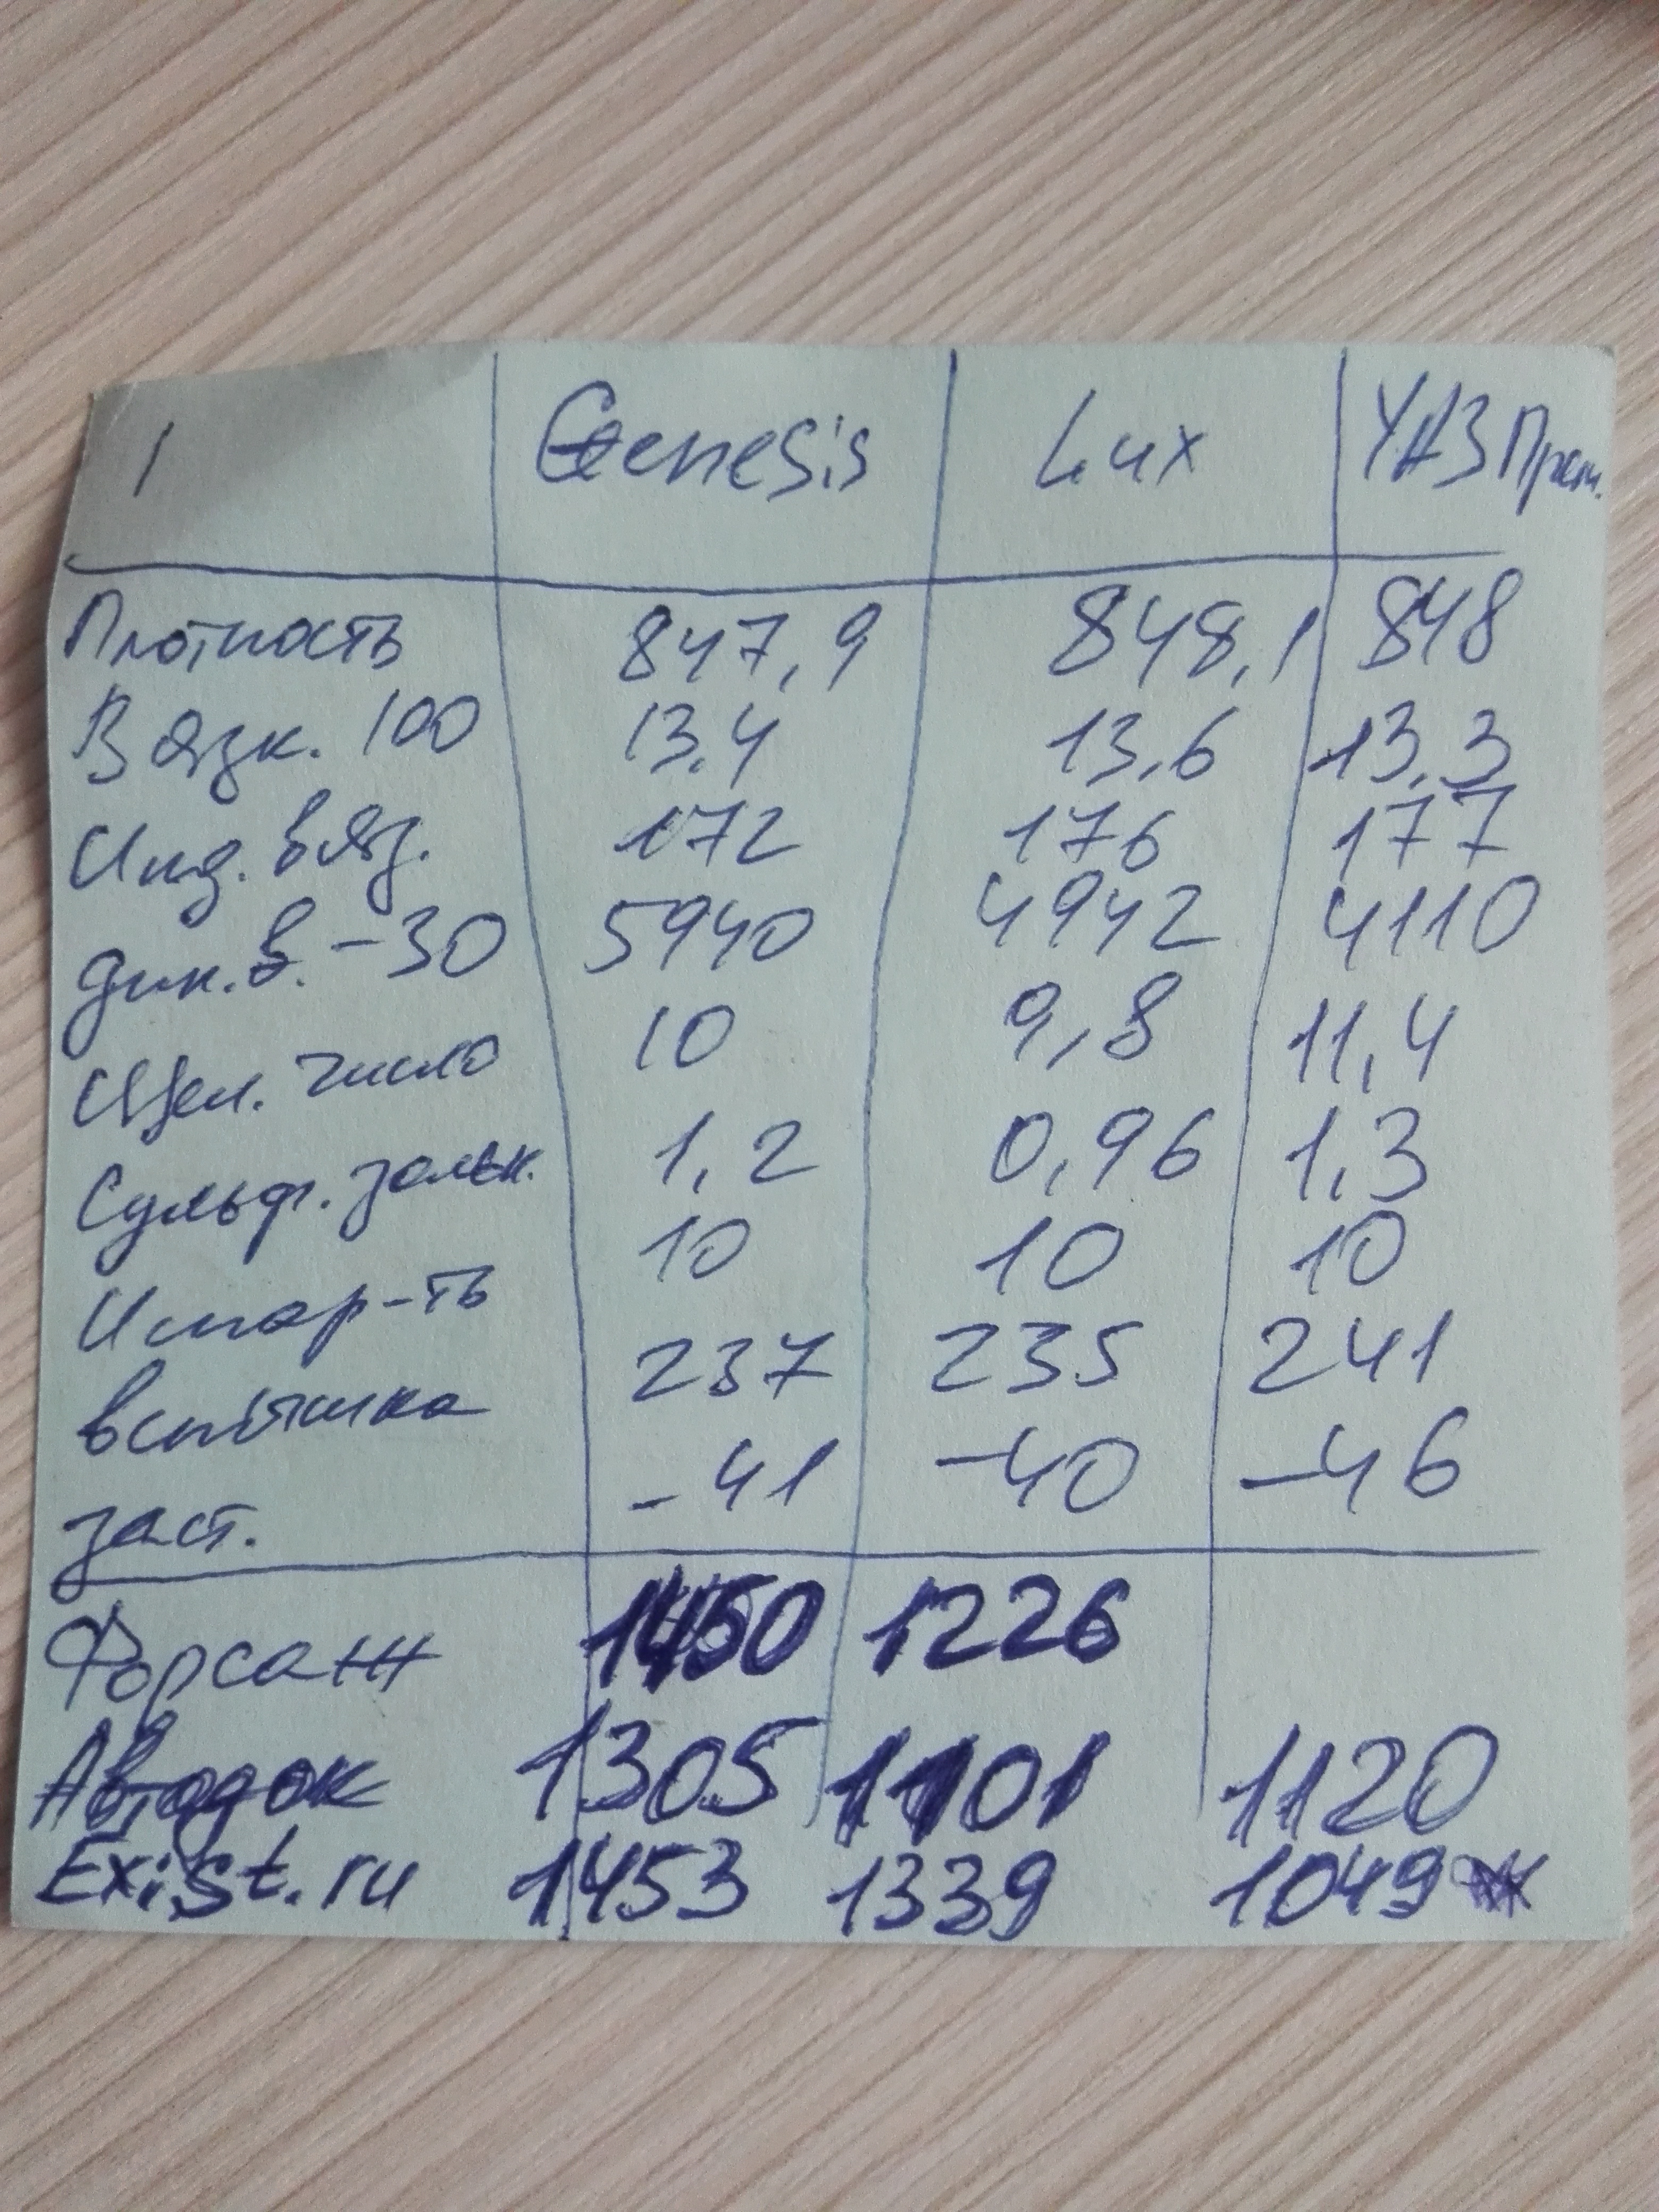 1 Genesis Lux УАЗ Прем.
Плотность 847,9 848,1 848
Вязк. 100 13.4 13,6 13,3
Инд. вяз. 172 176 177
дин. в. -30 5940 4942 4110
Щел. число 10 9,8 11,4
Сульф. зольн. 1,2 0,96 1,3
Испар-ть 10 10 10
вспышка 237 235 241
заст. -41 -40 -46
Форсаж 1450 1226
Автодок 1305 1101 1120
Exist.ru 1453 1339 1049